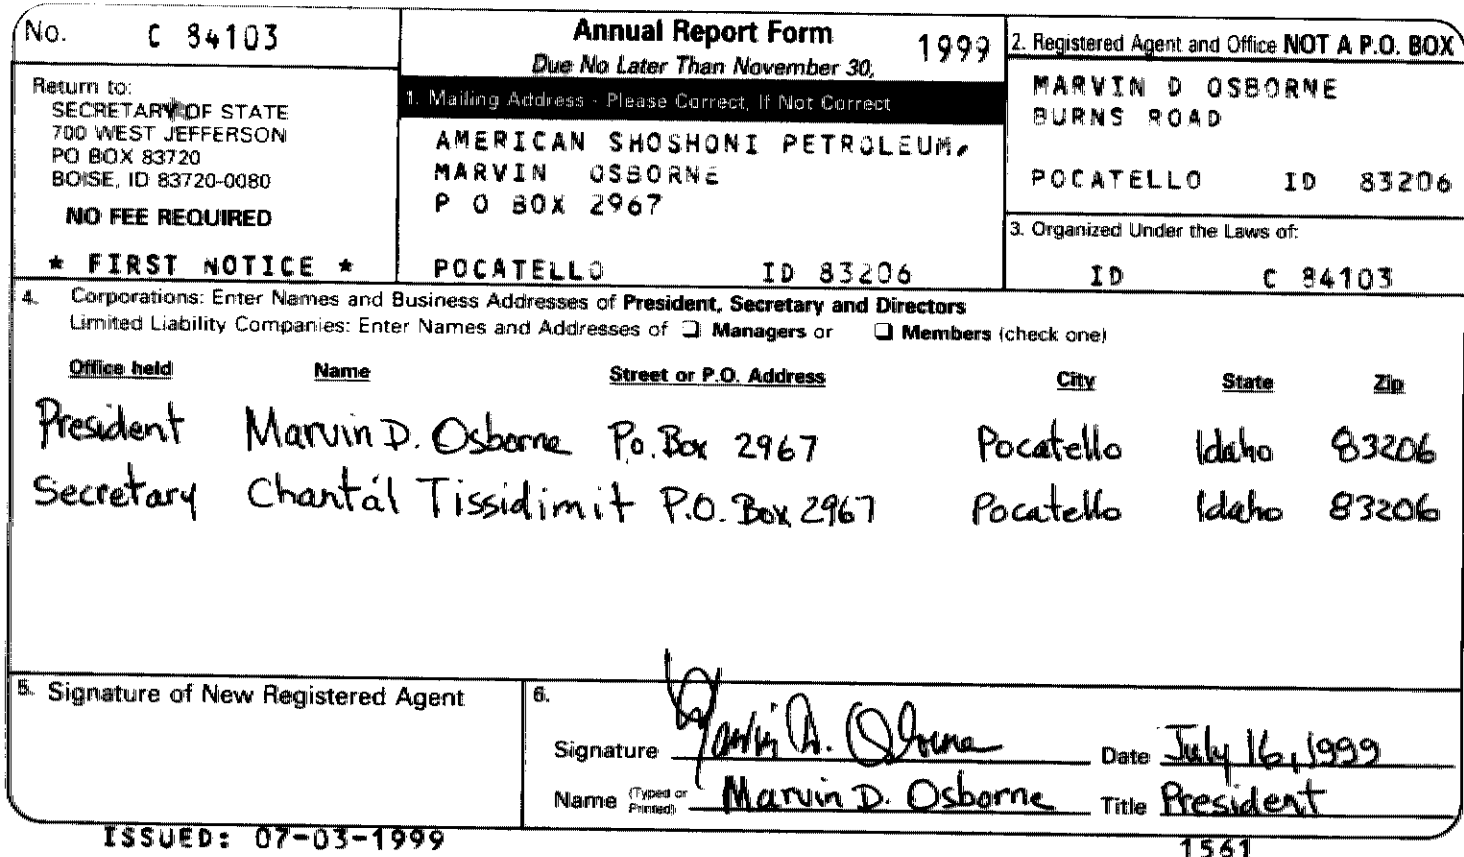 No. C 84103
Annual Report Form
1999
Due No Later Than November 30,
Return to:
SECRETARY OF STATE
700 WEST JEFFERSON
PO BOX 83720
BOISE, ID 83720-0080
NO FEE REQUIRED
* FIRST NOTICE *
1. Mailing Address - Please Correct, If Not Correct
AMERICAN SHOSHONI PETROLEUM,
MARVIN OSBORNE
P O BOX 2967
POCATELLO ID 83206
2. Registered Agent and Office NOT A P.O. BOX
MARVIN D OSBORNE
BURNS ROAD
POCATELLO ID 83206
3. Organized Under the Laws of:
ID C 84103
4. Corporations: Enter Names and Business Addresses of President, Secretary and Directors
Limited Liability Companies: Enter Names and Addresses of ❏ Managers or ❏ Members (check one)
Office held Name Street or P.O. Address City State Zip
President Marvin D. Osborne P.o. Box 2967 Pocatello Idaho 83206
Secretary Chantál Tissidimit P.O. Box 2967 Pocatello Idaho 83206
5. Signature of New Registered Agent
6.
Signature Marvin D. Osborne Date July 16, 1999
Name (Typed or Printed) Marvin D. Osborne Title President
ISSUED: 07-03-1999
1561